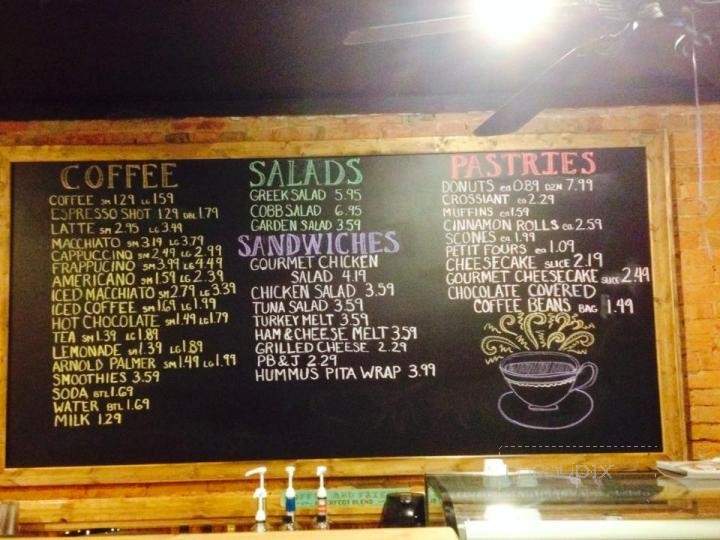 COFFEE
COFFEE SM 1.29 LG 1.59
ESPRESSO SHOT 1.29 DBL 1.79
LATTE SM 2.95 LG 3.99
MACCHIATO SM 3.19 LG 3.79
CAPPUCCINO SM 2.49 LG 2.99
FRAPPUCINO SM 3.99 LG 4.49
AMERICANO SM 1.59 LG 2.39
ICED MACCHIATO SM 2.79 LG 3.39
ICED COFFEE SM 1.69 LG 1.99
HOT CHOCOLATE SM 1.49 LG 1.79
TEA SM 1.39 LG 1.89
LEMONADE SM 1.39 LG 1.89
ARNOLD PALMER SM 1.49 LG 1.99
SMOOTHIES 3.59
SODA BTL 1.69
WATER BTL 1.69
MILK 1.29
SALADS
GREEK SALAD 5.95
COBB SALAD 6.95
GARDEN SALAD 3.59
SANDWICHES
GOURMET CHICKEN
SALAD 4.19
CHICKEN SALAD 3.59
TUNA SALAD 3.59
TURKEY MELT 3.59
HAM & CHEESE MELT 3.59
GRILLED CHEESE 2.29
PB & J 2.29
HUMMUS PITA WRAP 3.99
PASTRIES
DONUTS ea 0.89 DZN 7.99
CROSSIANT ea 2.29
MUFFINS ea 1.59
CINNAMON ROLLS ea 2.59
SCONES ea 1.99
PETIT FOURS ea 1.09
CHEESECAKE SLICE 2.19
GOURMET CHEESECAKE SLICE 2.49
CHOCOLATE COVERED
COFFEE BEANS BAG 1.49